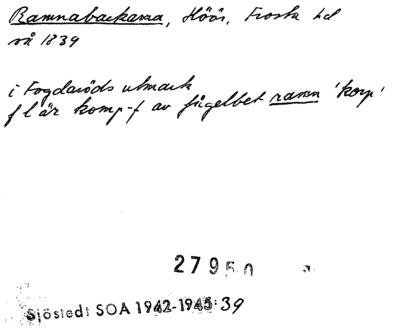 Ramnabackarna, Höör, Frosta hd
så 1839
i Fogdaröds utmark
f l är komp-f av fågelbet ramn 'korp'
27950
Sjöstedt SOA 1942-1945:39